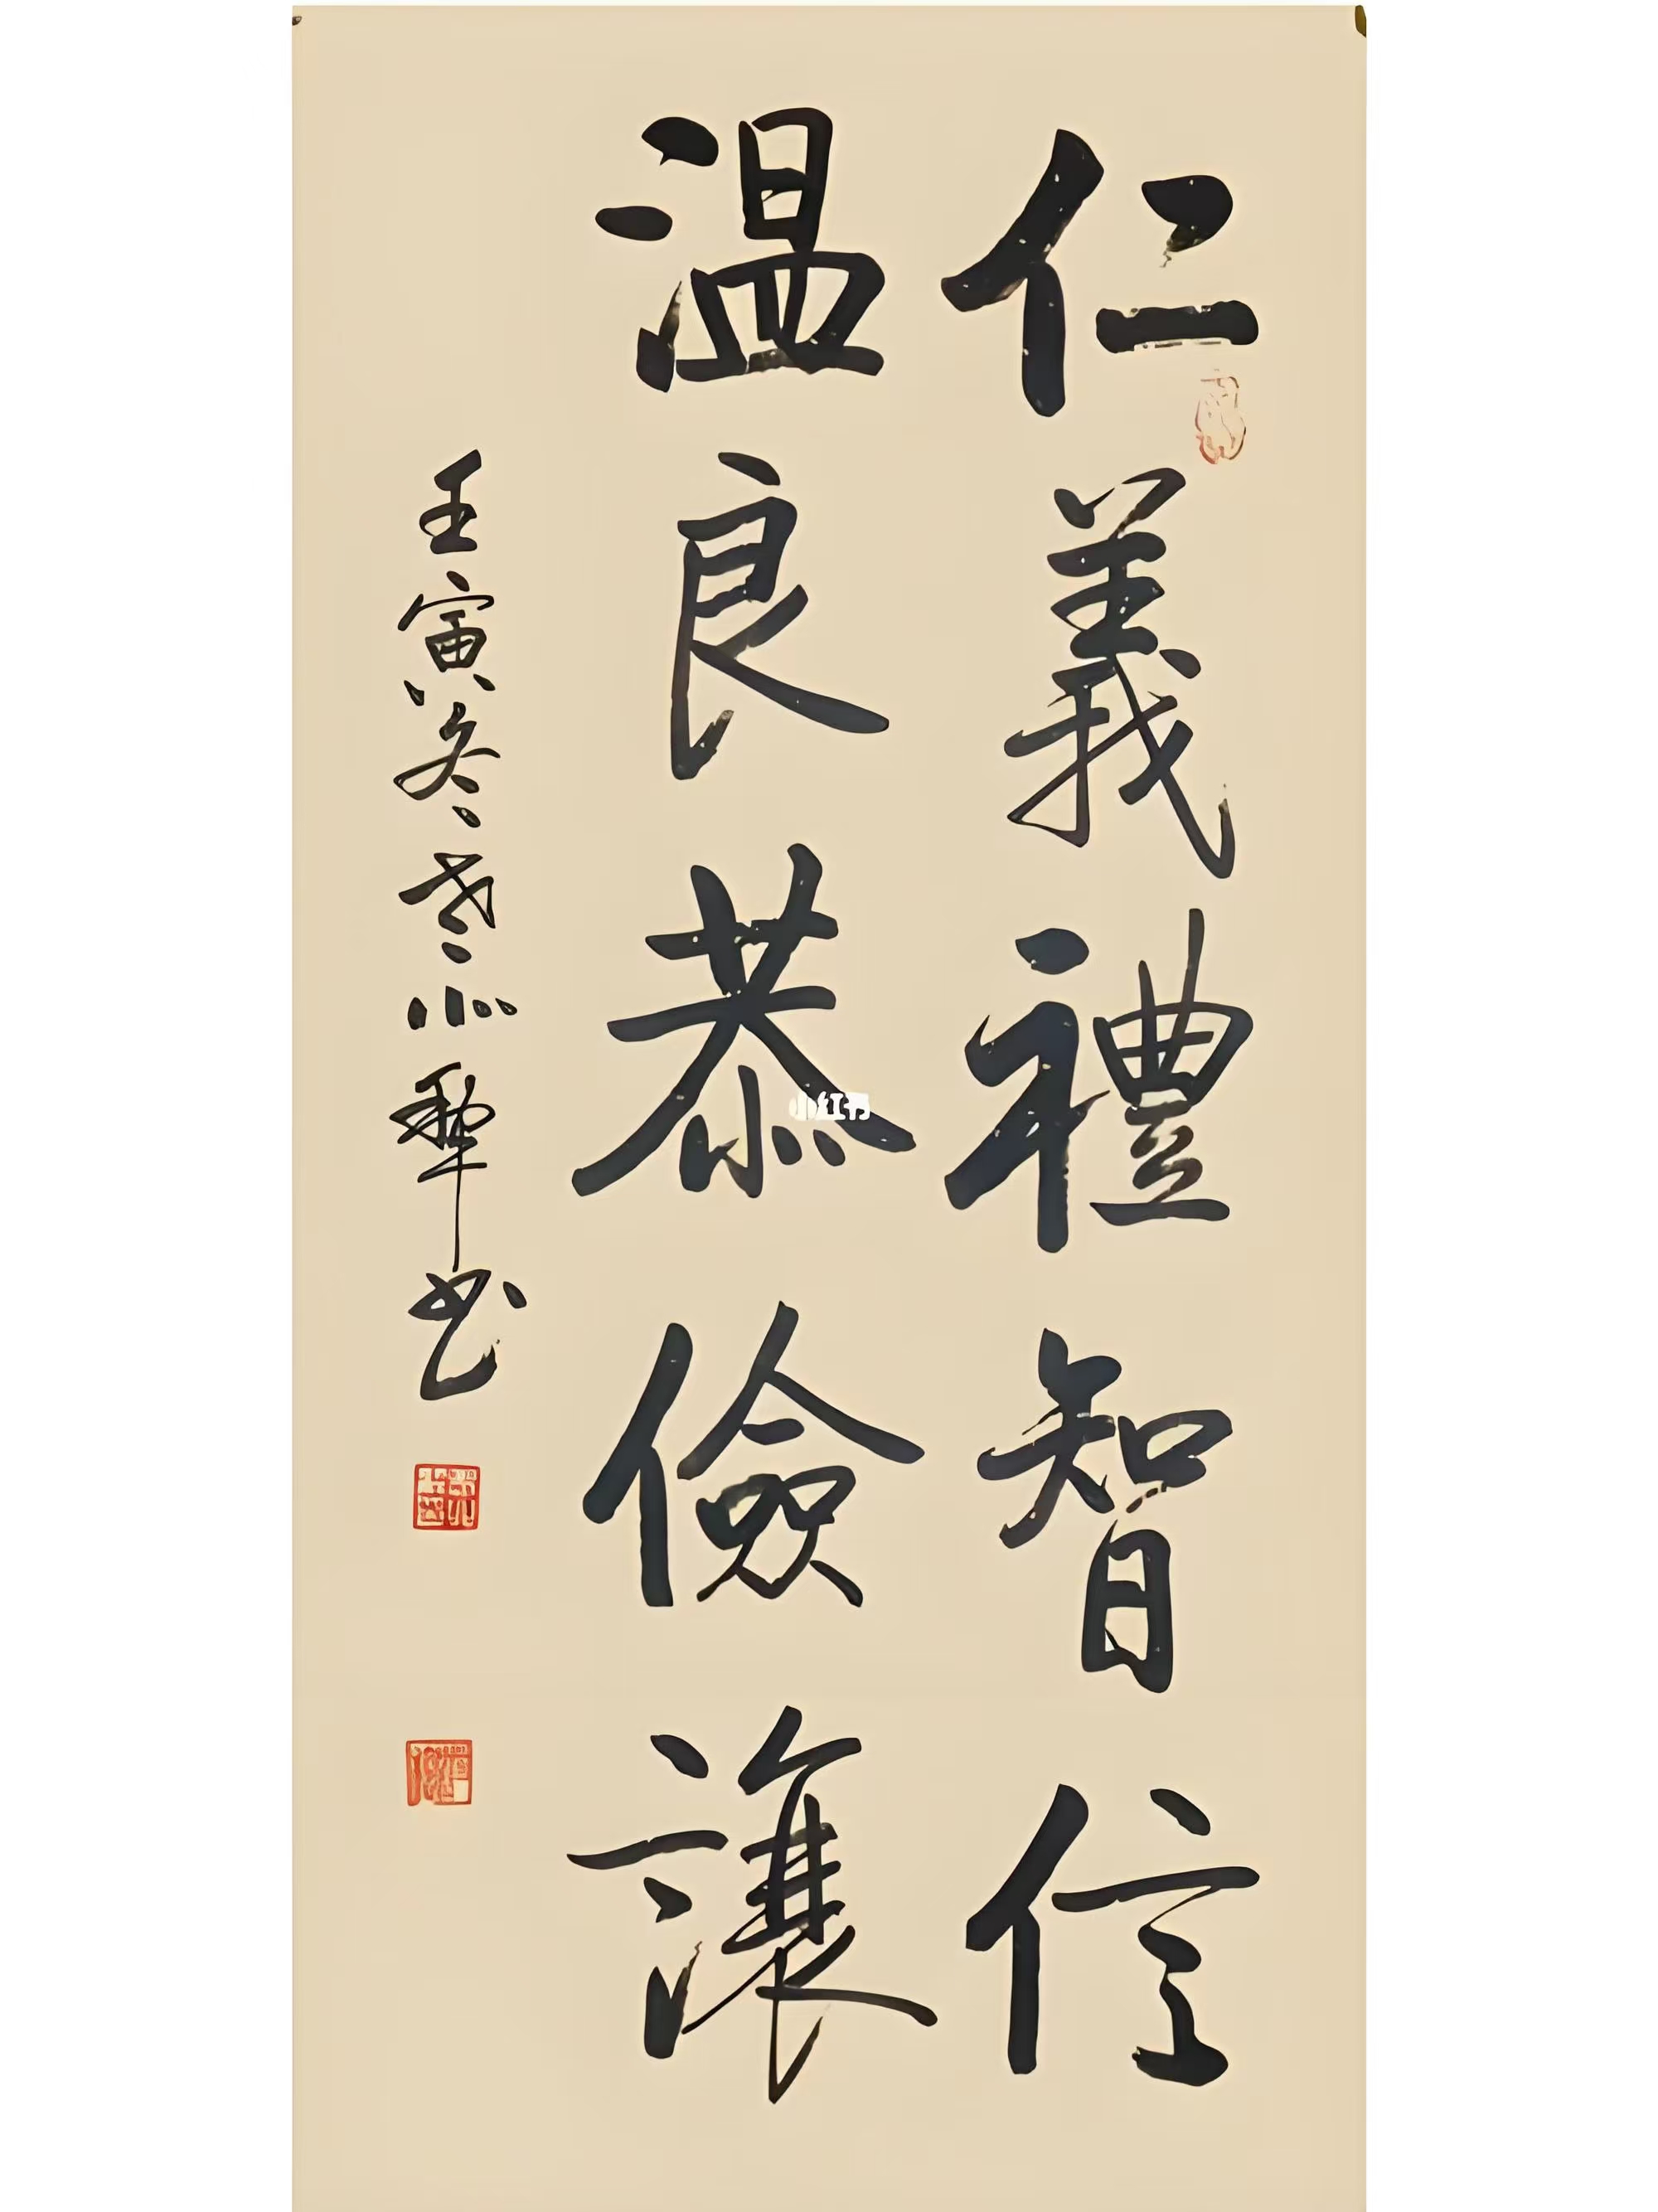 仁義禮智信
温良恭儉讓
壬寅冬李小犂书
小红书